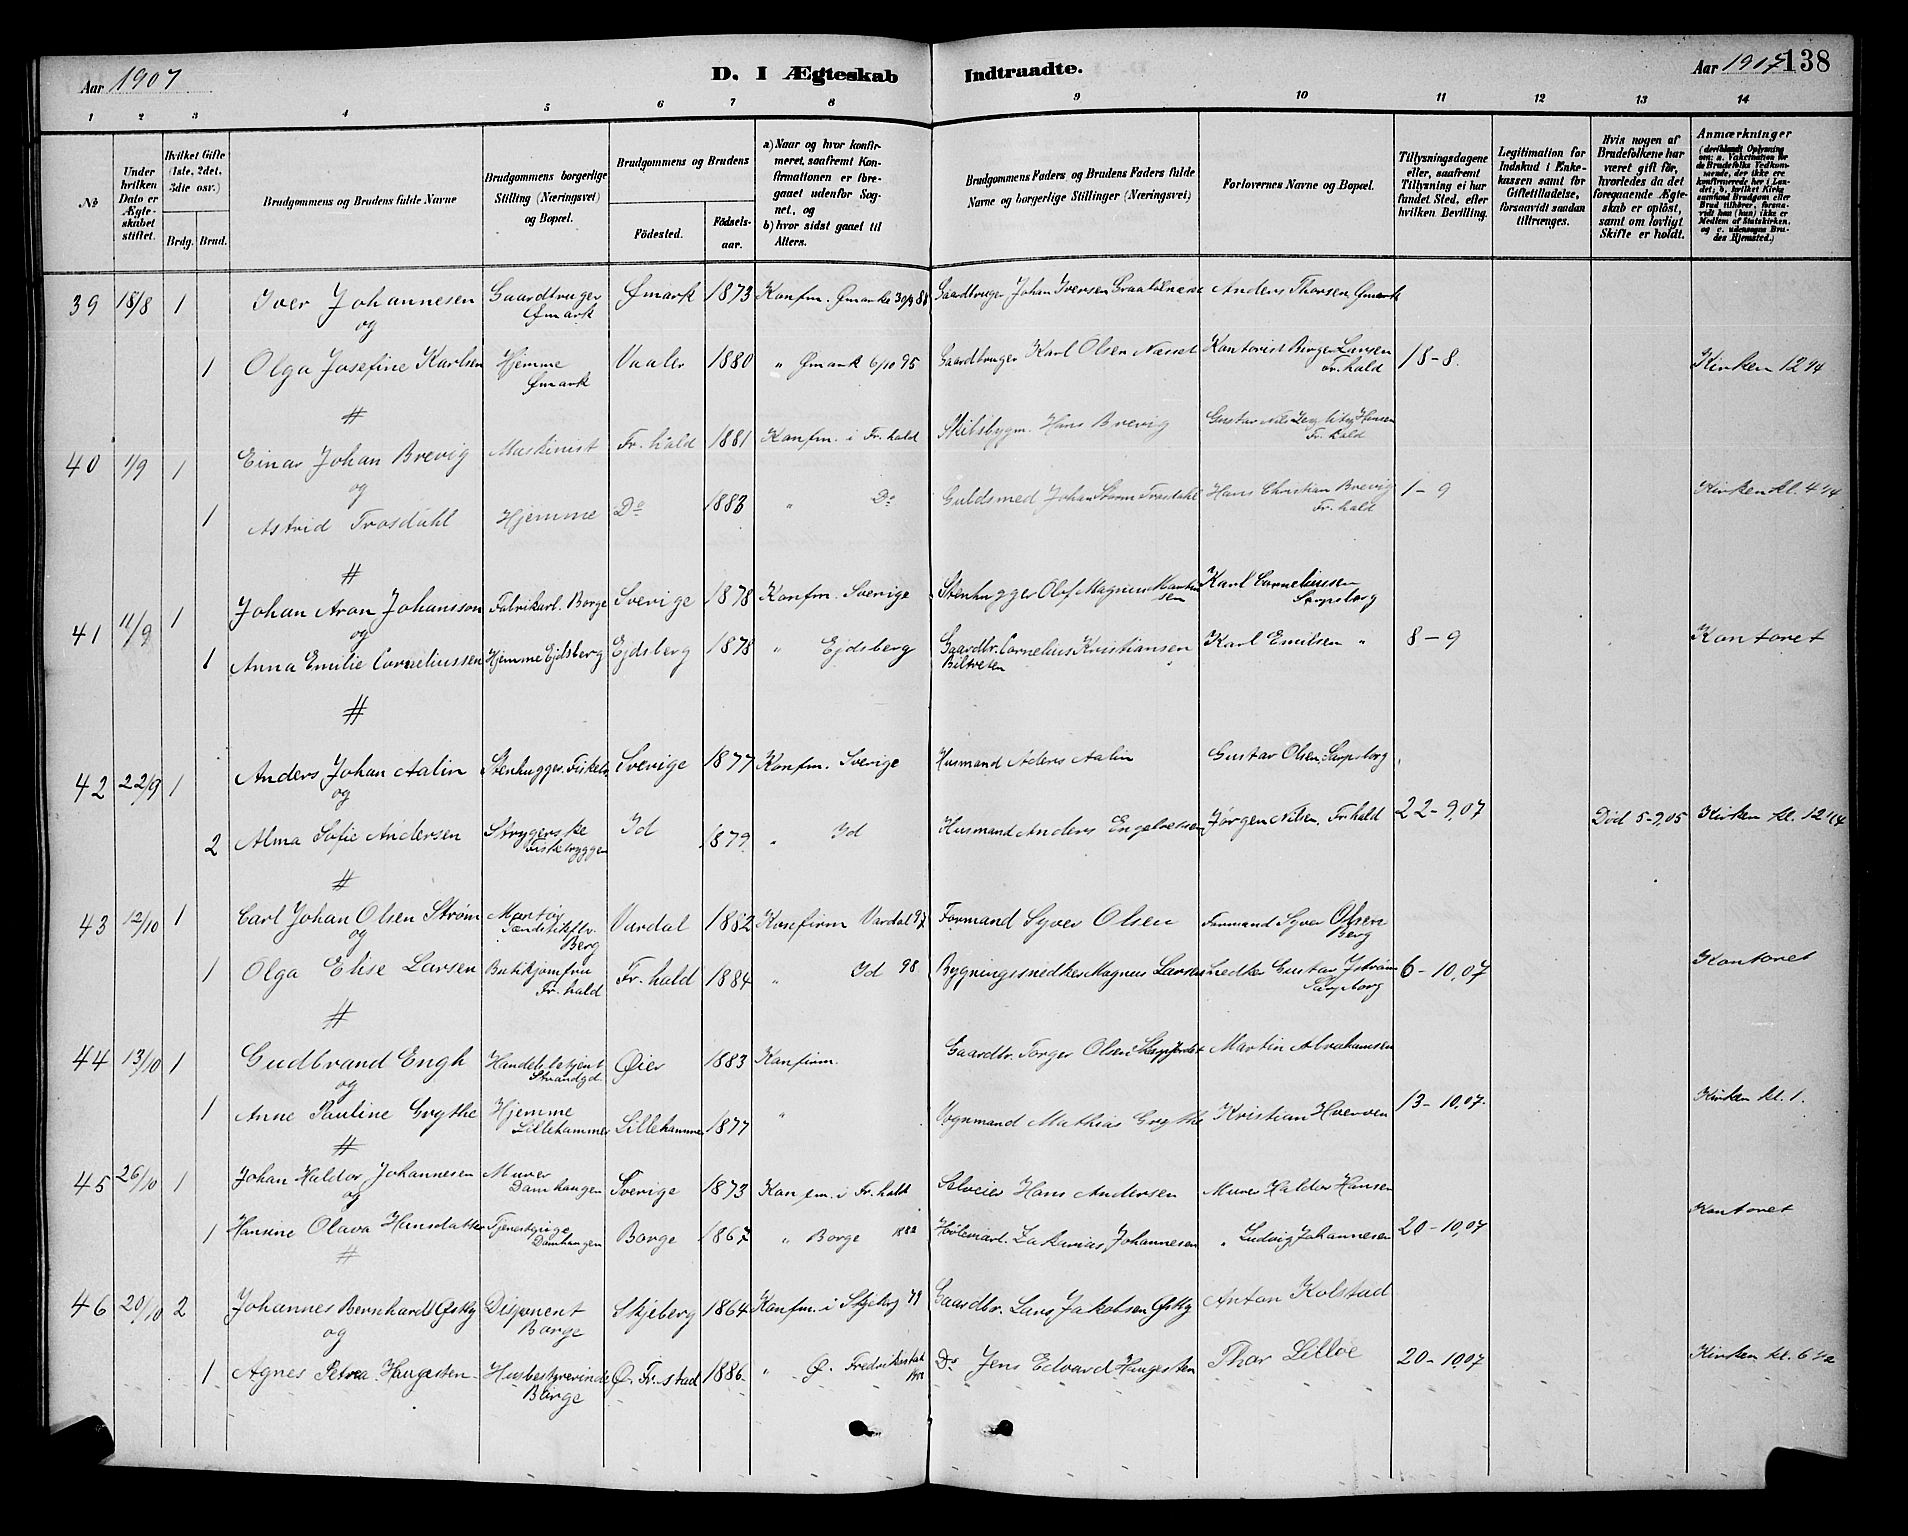 Aar 1907
D. I Ægteskab Indtraadte.
Aar 1907 138
1 2 3 4 5 6 7 8 9 10 11 12 13 14
No
Under hvilken Dato er Ægteskabet stiftet.
Hvilket Gifte (1ste, 2det, 3die osv.)
Brdg. Brud.
Brudgommens og Brudens fulde Navne
Brudgommens borgerlige Stilling (Næringsvei) og Bopæl.
Brudgommens og Brudens
Födested. Födselsaar.
a) Naar og hvor konfirmeret, saafremt Konfirmationen er foregaaet udenför Sognet, og
b) hvor sidst gaaet til Alters.
Brudgommens Faders og Brudens Faders fulde Navne og borgerlige Stillinger (Næringsvei)
Forlovernes Navne og Bopæl.
Tillysningsdagene eller, saafremt Tillysning ei har fundet Sted, efter hvilken Bevilling.
Legitimation for Indskud i Enkekassen samt før Giftetilladelse, forsaavidt saadan tiltrænges.
Hvis nogen af Brudefolkene har været gift før, hvorledes da det foregaaende Ægteskab er opløst, samt om lovligt Skifte er holdt.
Anmærkninger (deriblandt Oplysning om: a. Vakcination for de Brudefolks Vedkommende, der ikke ere konfirmerede her i Landet; b. hvilket Kirkesamfund Brudgom eller Brud tilhører, forsaavidt han (hun) ikke er Medlem af Statskirken, og c. udensogns Brudes Hjemsted.)
39 18/8 1 Iver Johannesen Gaardbruger Ømark Ømark 1873 Konfm. Ømarke 30/9 88 Gaardbruger Johan Iversen Anders Thorsen, Ømark
og
1 Olga Josefine Karlsen Hjemme Ømark Vaaler 1880 " Ømark 6/10 95 Gaardbruger Karl Olsen Næset Kontorist Birger Larsen Fr.hald 18-8. Kirken 12 1/4
#
40 1/9 1 Einar Johan Brevig Maskinist Fr. hald 1881 Konfm. i Fr. hald Skibsbygm. Hans Brevig Gustav Nils Hansen Fr. hald
og
1 Astrid Trosdahl Hjemme Do 1883 " Do Guldsmed Johan Storm Trosdahl Hans Christian Brevig Fr. hald 1-9 Kirken kl. 4 1/4
#
41 11/9 1 Johan Aron Johansson Fabrikarb. Borge Sverige 1878 Konfm. Sverige Stenhugger Olof Magnus Karl Corneliussen Sarpsborg
og
1 Anna Emilie Corneliussen Hjemme Ejdsberg Ejdsberg 1878 " Ejdsberg Gaardbr. Cornelius Kristiansen Karl Emilsen " 8-9 Kontoret
#
42 22/9 1 Anders Johan Aalin Stenhugger. Sverige 1877 Konfm. Sverige Husmand Aders Aalin Gustav Olsen, Sarpsborg
og
2 Alma Sofie Andersen Strygerske Fiskebryggen Id 1879 " Id Husmand Anders Engebretsen Jørgen Nilsen, Fr.hald 22-9,07 Død 5-9,05 Kirken kl. 12 1/4
#
43 12/10 1 Carl Johan Olsen Strøm Berg Vardal 1882 Konfirm Vardal 97 Formand Syver Olsen Formand Syver Olsen Berg
og
1 Olga Elise Larsen Butikjomfru Fr. hald Fr. hald 1884 " Id 98 Bygningssnedker Magnus Larsen Snedker Gustav Sarpsborg 6-10,07 Kontoret
#
44 13/10 1 Gudbrand Engh Handelsbetjent Strandgd. Øier 1883 Konfirm. Gaardbr. Torger Olsen Martin Abrahamsen
og
1 Anne Pauline Grythe Hjemme Lillehammer Lillehammer 1877 " Vognmand Mathias Grythe Kristian Hverven 13-10,07. Kirken kl. 1.
#
45 26/10 1 Johan Haldor Johannesen Murer Damhaugen Sverige 1873 Konfm. i Fr. hald Selveier Hans Andersen Murer Haldor Hansen
og
1 Hansine Olava Hansdatter Tjenestpige Damhaugen Borge 1867 " Borge 1882 Zakarias Johannesen " Ludvig Johannesen 20-10,07 Kontoret
#
46 20/10 2 Johannes Bernhard Østby Disponent Borge Skjeberg 1864 Konfm. i Skjeberg 79 Gaardbr. Lars Jakobsen Østby Anton Kolstad
og
1 Agnes Petrea Haugesten Husbestyrerinde Borge Ø. Fr. stad 1886 " Ø. Fredrikstad Do Jens Edvard Haugesten Thor Lilløe 20-1007 Kirken kl. 6 1/2